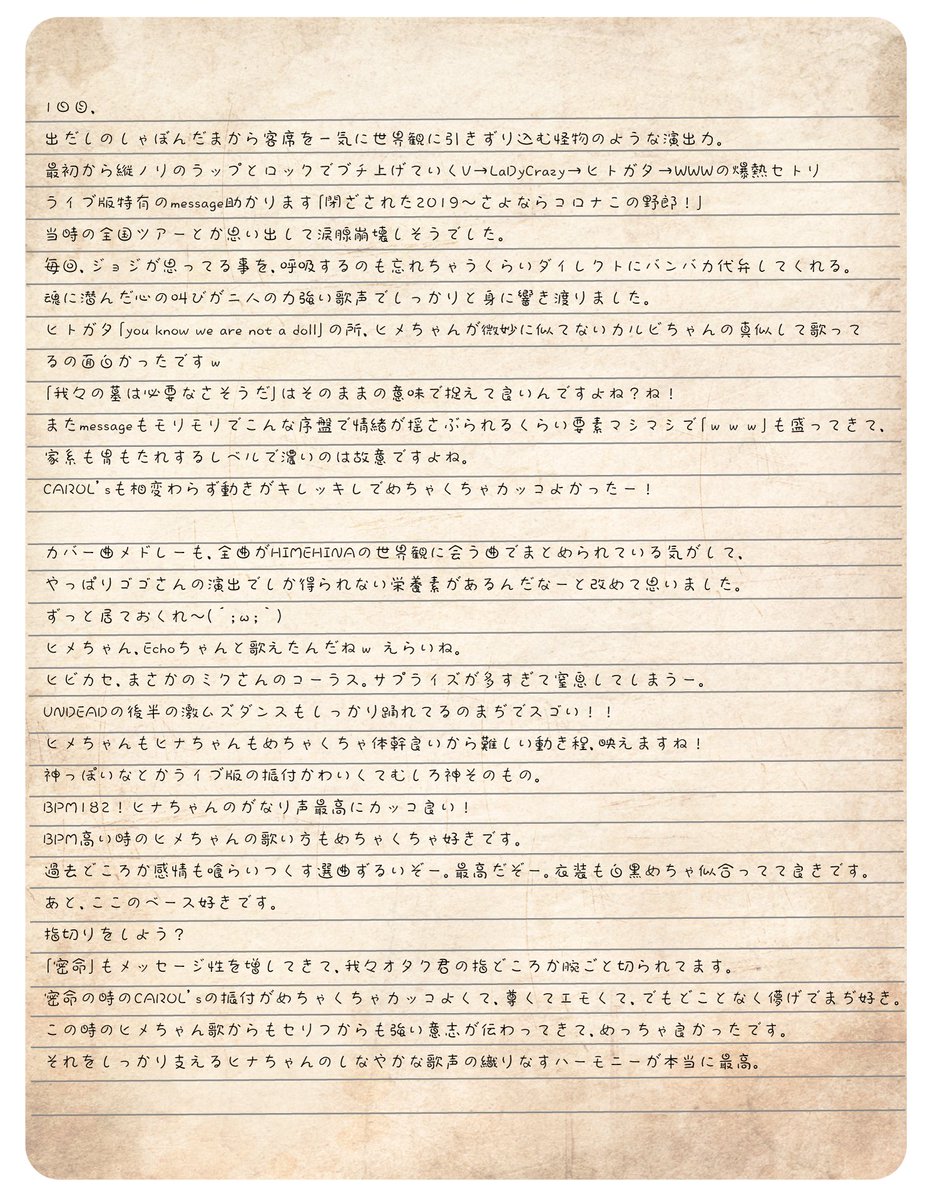 1回目、
出だしのしゃぼんだまから客席を一気に世界観に引きずり込む怪物のような演出力。
最初から縦ノリのラップとロックでブチ上げていくV→LaDyCrazy→ヒトガタ→WWWの爆熱セトリ
ライブ版特有のmessage助かります「閉ざされた2019〜さよならコロナこの野郎！」
当時の全国ツアーとか思い出して涙腺崩壊しそうでした。
毎回、ジョジが思ってる事を、呼吸するのも忘れちゃうくらいダイレクトにバンバカ代弁してくれる。
魂に潜んだ心の叫びが二人の力強い歌声でしっかりと身に響き渡りました。
ヒトガタ「you know we are not a doll」の所、ヒメちゃんが微妙に似てないカルビちゃんの真似して歌って
るの面白かったですｗ
「我々の墓は必要なさそうだ」はそのままの意味で捉えて良いんですよね？ね！
またmessageもモリモリでこんな序盤で情緒が揺さぶられるくらい要素マシマシで「ｗｗｗ」も盛ってきて、
家系も胃もたれするレベルで濃いのは故意ですよね。
CAROL'sも相変わらず動きがキレッキレでめちゃくちゃカッコよかったー！
カバー曲メドレーも、全曲がHIMEHINAの世界観に会う曲でまとめられている気がして、
やっぱりゴゴさんの演出でしか得られない栄養素があるんだなーと改めて思いました。
ずっと居ておくれ〜(´;ω;｀)
ヒメちゃん、Echoちゃんと歌えたんだねｗ えらいね。
ヒビカセ、まさかのミクさんのコーラス。サプライズが多すぎて窒息してしまうー。
UNDEADの後半の激ムズダンスもしっかり踊れてるのまぢでスゴい！！
ヒメちゃんもヒナちゃんもめちゃくちゃ体幹良いから難しい動き程、映えますね！
神っぽいなとかライブ版の振付かわいくてむしろ神そのもの。
BPM182！ヒナちゃんのがなり声最高にカッコ良い！
BPM高い時のヒメちゃんの歌い方もめちゃくちゃ好きです。
過去どころか感情も喰らいつくす選曲ずるいぞー。最高だぞー。衣装も白黒めちゃ似合ってて良きです。
あと、ここのベース好きです。
指切りをしよう？
「密命」もメッセージ性を増してきて、我々オタク君の指どころか腕ごと切られてます。
密命の時のCAROL'sの振付がめちゃくちゃカッコよくて、尊くてエモくて、でもどことなく儚げでまぢ好き。
この時のヒメちゃん歌からもセリフからも強い意志が伝わってきて、めっちゃ良かったです。
それをしっかり支えるヒナちゃんのしなやかな歌声の織りなすハーモニーが本当に最高。